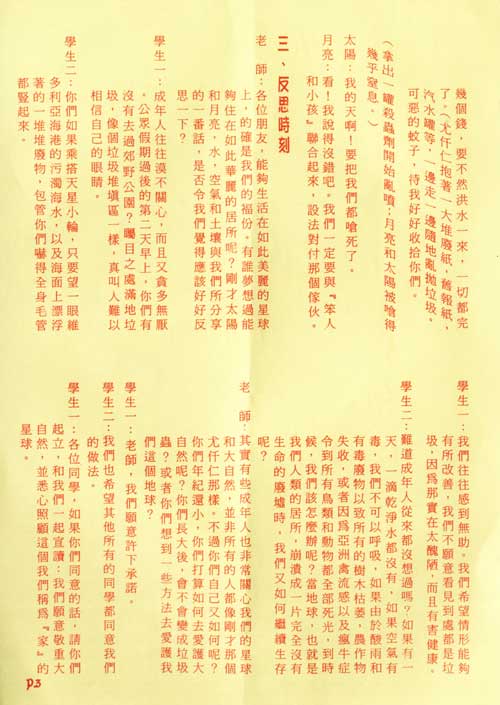 幾個錢，要不然洪水一來，一切都完
了。(尤仟仁抱著一大堆廢紙，舊報紙，
汽水罐等，一邊走一邊隨地亂拋垃圾。
可惡的蚊子，待我好好收拾你們。
(拿出一罐殺蟲劑開始亂噴；月亮和太陽被嗆得
幾乎窒息。)
太陽：我的天啊！要把我們都嗆死了。
月亮：看！我說得沒錯吧。我們一定要與『笨人
和小孩』聯合起來，設法對付那個傢伙。
三、反思時刻
老　師：各位朋友，能夠生活在如此美麗的星球
上，的確是我們的福份。有誰夢想過能
夠住在如此華麗的居所呢？剛才太陽
和月亮，水，空氣和土壤與我們所分享
的一番話，是否令我們覺得應該好好反
思一下？
學生一：成年人往往漠不關心，而且又貪多無厭
。公眾假期過後的第二天早上，你們有
沒有去過郊野公園？矚目之處滿地垃
圾，像個垃圾堆填區一樣，真叫人難以
相信自己的眼睛。
學生二：你們如果乘搭天星小輪，只要望一眼維
多利亞海港的污濁海水，以及海面上漂浮
著的一堆堆廢物，包管你們嚇得全身毛管
都豎起來。
學生一：我們往往感到無助。我們希望情形能夠
有所改善，我們不願意看見到處都是垃
圾，因為那實在太醜陋，而且有害健康。
學生二：難道成年人從來都沒想過嗎？如果有一
天，一滴乾淨水都沒有，如果空氣有
毒，我們不可以呼吸，如果由於酸雨和
有毒廢物以致所有的樹木枯萎，農作物
失收，或者因為亞洲禽流感以及瘋牛症
令到所有鳥類和動物都全部死光，到時
候，我們該怎麼辦呢？當地球，也就是
我們人類的居所，崩潰成一片完全沒有
生命的廢墟時，我們又如何繼續生存
呢？
老　師：其實有些成年人也非常關心我們的星球
和大自然，並非所有的人都像剛才那個
尤仟仁那樣。不過你們自己又如何呢？
你們年紀還小，你們打算如何去愛護大
自然呢？你們長大後，會不會變成垃圾
蟲？或者你們想到一些方法去愛護我
們這個地球？
學生一：老師，我們願意許下承諾。
學生二：我們也希望其他所有的同學都同意我們
的做法。
學生一：各位同學，如果你們同意的話，請你們
起立，和我們一起宣讀：我們願意敬重大
自然，並悉心照顧這個我們稱為『家』的
星球。
P.3